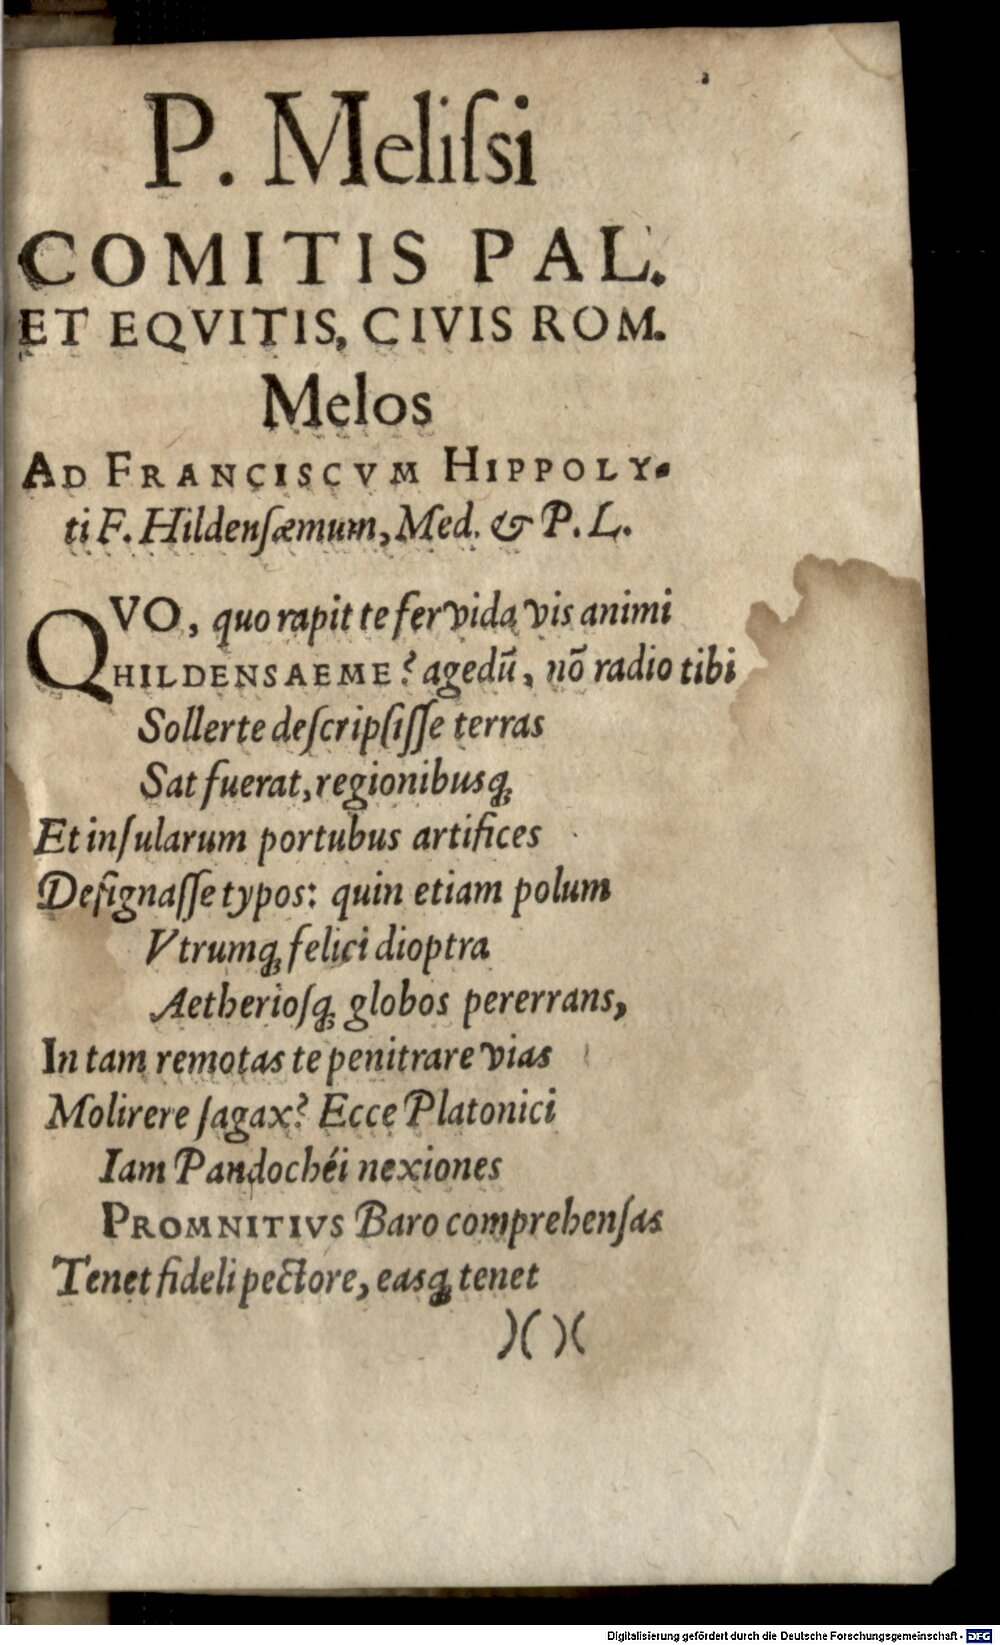 P. Meliſsi
COMITIS PAL.
ET EQVITIS, CIVIS ROM.
Melos
AD FRANCISCVM HIPPOLY-
ti F. Hildenſæmum, Med. & P. L.
QVO, quo rapit te fervida vis animi
HILDENSAEME? agedū, nō radio tibi
Sollerte deſcripſiſſe terras
Sat fuerat, regionibusq;
Et inſularum portubus artifices
Deſignaſſe typos: quin etiam polum
Vtrumq; felici dioptra
Aetherioſq; globos pererrans,
In tam remotas te penitrare vias
Molirere ſagax? Ecce Platonici
Iam Pandochéi nexiones
PROMNITIVS Baro comprehenſas
Tenet fideli pectore, easq; tenet
)( )(
Digitalisierung gefördert durch die Deutsche Forschungsgemeinschaft - DFG